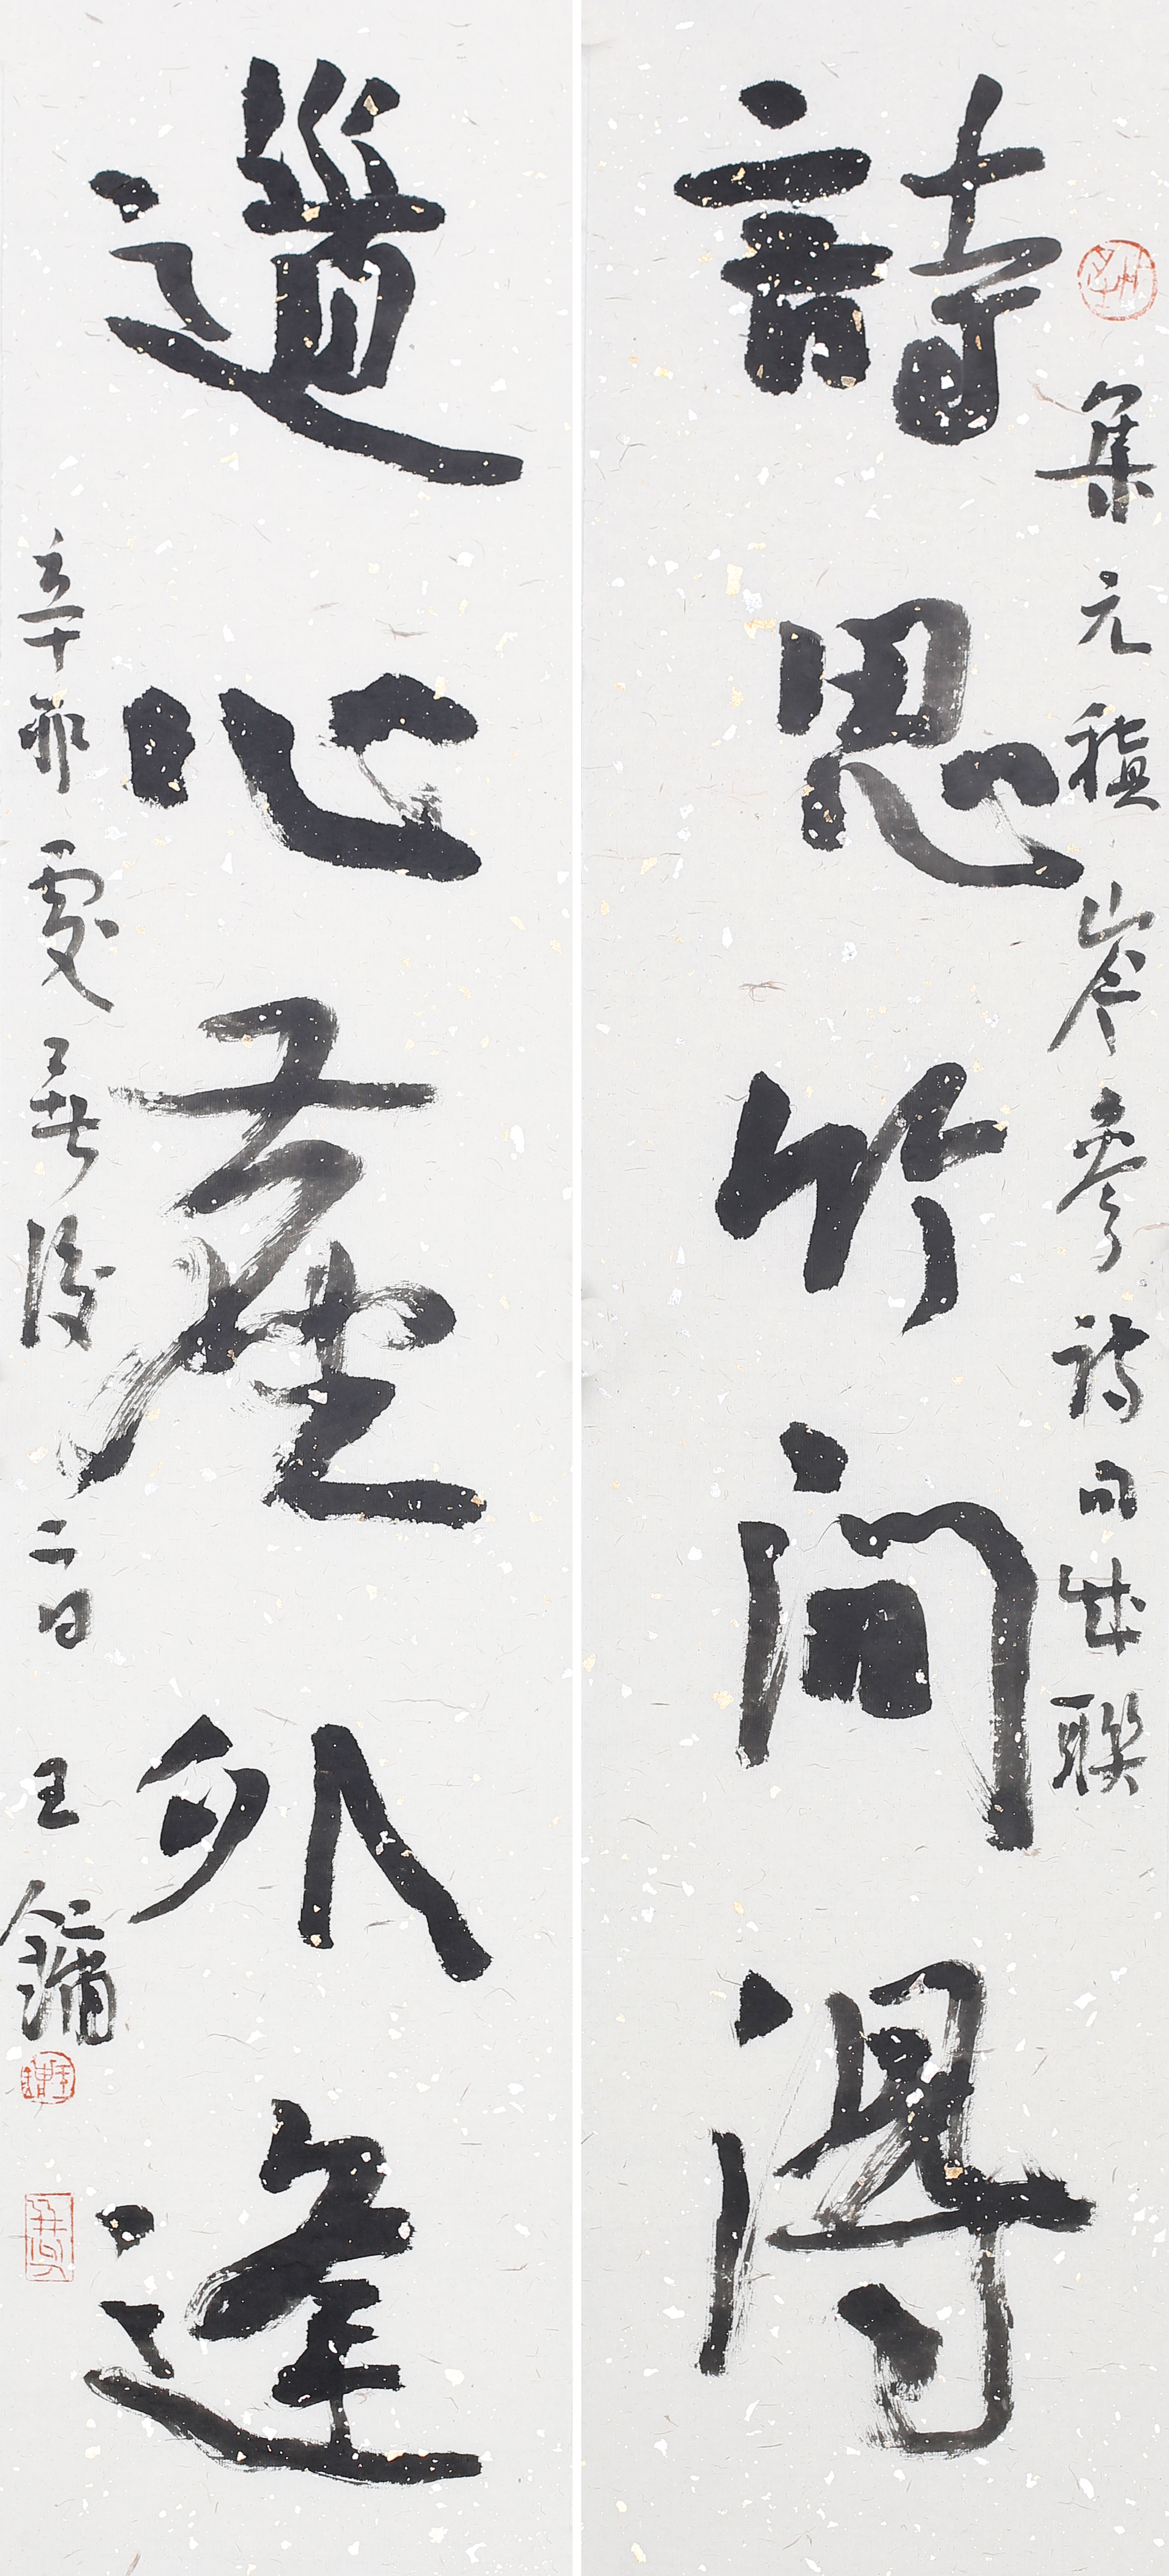 集元稹岑參詩句成聯
詩思竹間得
道心塵外逢
辛卯處暑後二日 王鏞